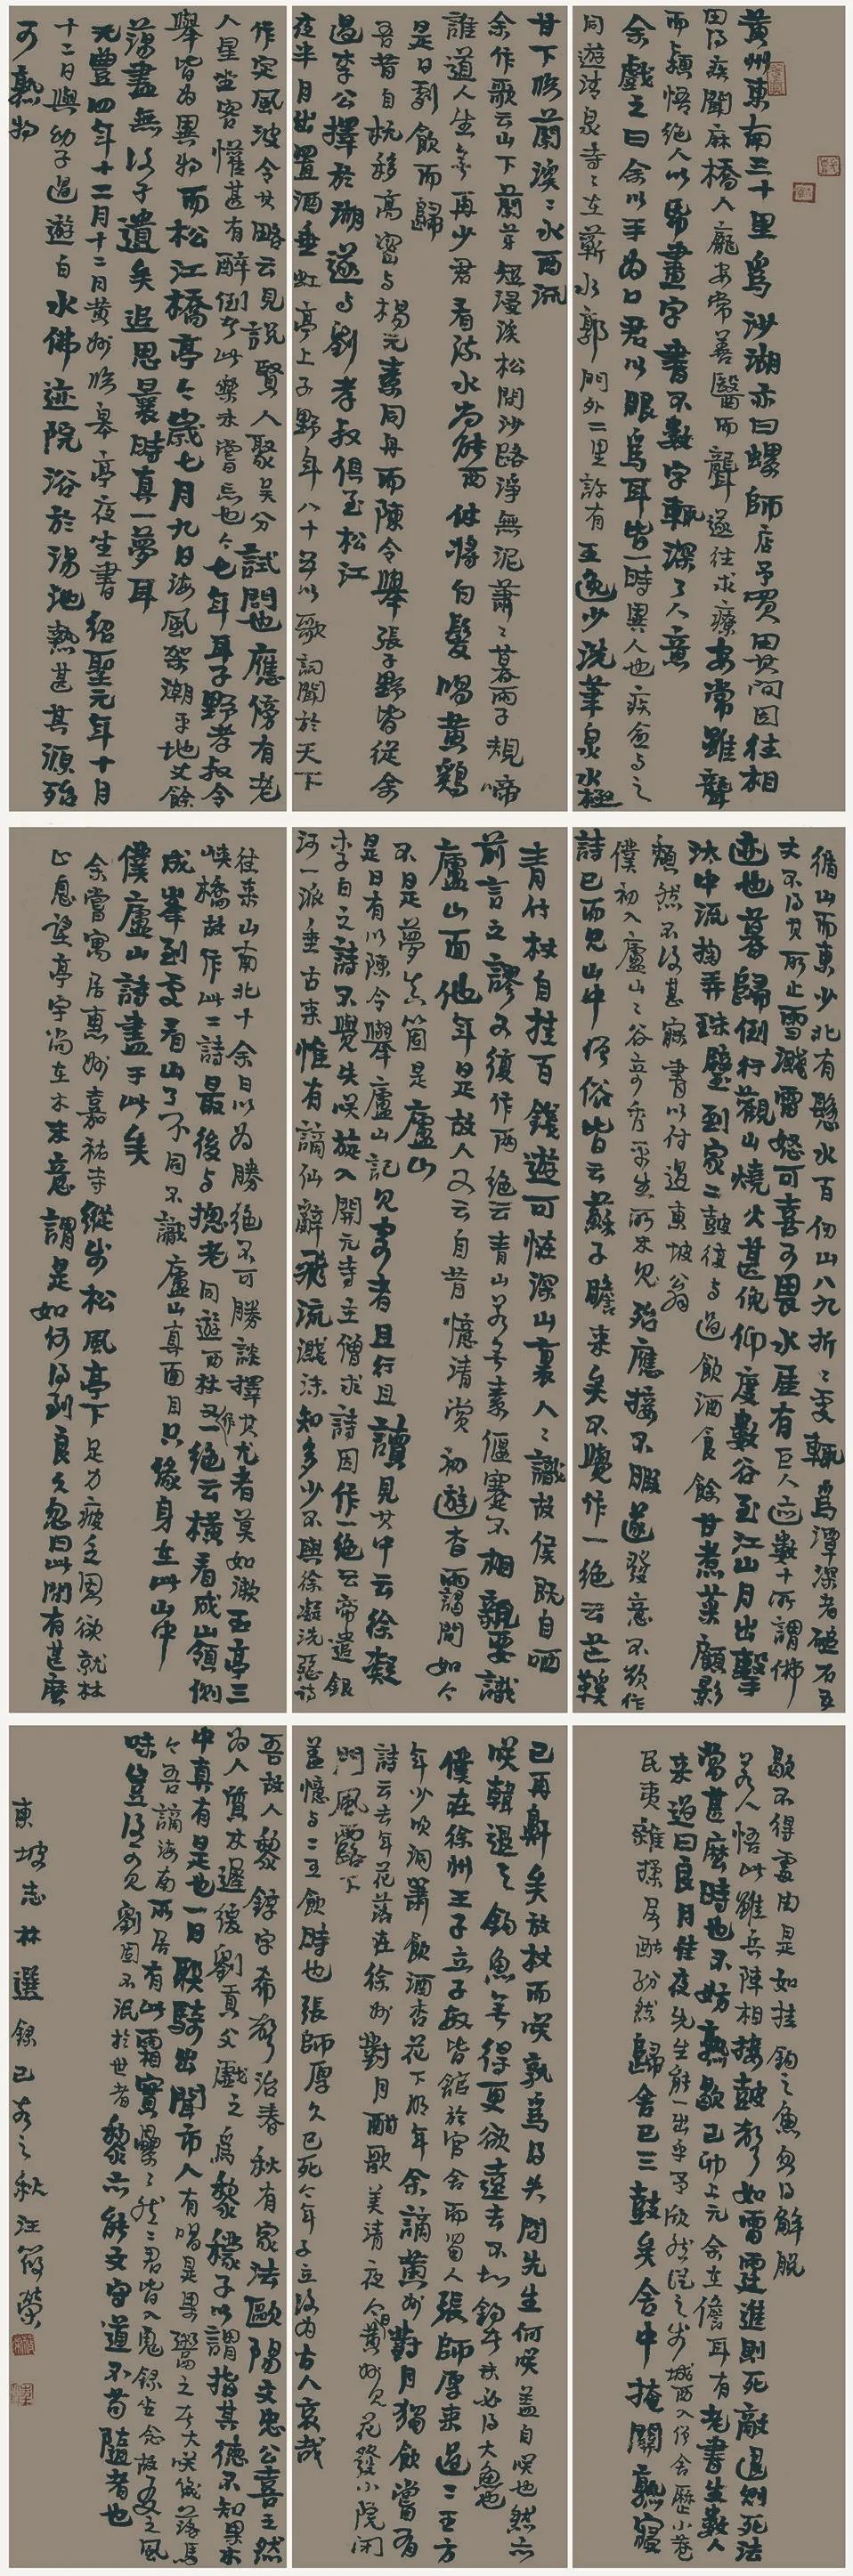 黄州東南三十里為沙湖亦曰螺師店予買田其間因往相
田得疾聞麻橋人龐安常善醫而聾遂往求療安常雖聾
而穎悟絕人以紙畫字書不數字輒深了人意
余戲之曰余以手為口君以眼為耳皆一時異人也疾愈与之
同遊清泉寺寺在蘄水郭門外二里許有王逸少洗筆泉水極
甘下臨蘭溪溪水西流
余作歌云山下蘭芽短浸溪松間沙路淨無泥蕭蕭暮雨子規啼
誰道人生無再少君看流水尚能西休將白髮唱黄鷄
是日劇飲而歸
吾昔自杭移高密与楊元素同舟而陳令舉張子野皆從余
過李公擇於湖遂与劉孝叔俱至松江
夜半月出置酒垂虹亭上子野年八十五以歌詞聞於天下
作定風波令其略云見說賢人聚吳分試問也應傍有老
人星坐客懽甚有醉倒者此樂未嘗忘也今七年耳子野孝叔令
舉皆為異物而松江橋亭今歲七月九日海風架潮平地丈餘
蕩盡無復孑遺矣追思曩時真一夢耳
元豐四年十二月十二日黄州臨皋亭夜坐書 紹聖元年十月
十二日與幼子過遊白水佛迹院浴於湯池熱甚其源殆
可熟物
循山而東少北有懸水百仞山八九折折處輒為潭深者磓石五
丈不得其所止雪濺雷怒可喜可畏水厓有巨人迹數十所謂佛
迹也暮歸倒行觀山燒火甚俛仰度數谷至江山月出擊
汰中流掬弄珠璧到家二鼓復与過飲酒食餘甘煮菜顧影
頹然不復甚寐書以付過東坡翁
僕初入廬山山谷奇秀平生所未見殆應接不暇遂發意不欲作
詩已而見山中僧俗皆云蘇子瞻来矣不覺作一絕云芒鞵
青竹杖自挂百錢遊可怪深山裏人人識故侯既自哂
前言之謬又復作兩絕云青山若無素偃蹇不相親要識
廬山面他年是故人又云自昔憶清賞初遊杳靄間如今
不是夢真箇是廬山
是日有以陳令舉廬山記見寄者且行且讀見其中云徐凝
李白之詩不覺失咲旋入開元寺主僧求詩因作一絕云帝遣銀
河一派垂古来惟有謫仙辭飛流濺沫知多少不與徐凝洗惡詩
往来山南北十余日以為勝絕不可勝談擇其尤者莫如漱玉亭三
峽橋故作此二詩最後与摠老同遊西林又作一絕云横看成嶺側
成峯到處看山了不同不識廬山真面目只緣身在此山中
僕廬山詩盡于此矣
余嘗寓居惠州嘉祐寺縱步松風亭下足力疲乏思欲就林
止息望亭宇尚在木末意謂是如何得到良久忽曰此間有甚麼
歇不得處由是如挂鉤之魚忽得解脱
若人悟此雖兵陣相接鼓聲如雷霆進則死敵退則死法
當甚麼時也不妨熟歇己卯上元余在儋耳有老書生數人
来過曰良月佳夜先生能一出乎予欣然從之步城西入僧舍歷小巷
民夷雜揉屠酤紛然歸舍已三鼓矣舍中掩關熟寢
已再鼾矣放杖而咲孰為得失問先生何咲蓋自咲也然亦
咲韓退之釣魚無得更欲遠去不知釣者未必得大魚也
僕在徐州王子立子敏皆館於官舍而蜀人張師厚来過二王方
年少吹洞簫飲酒杏花下明年余謫黄州對月獨飲嘗有
詩云去年花落在徐州對月酣歌美清夜今日黄州見花發小院閉
門風露下
蓋憶与二王飲時也張師厚久已死今年子立復為古人哀哉
吾故人黎錞字希聲治春秋有家法歐陽文忠公喜之然
為人質木遲緩劉貢父戲之為黎檬子以謂指其德不知果木
中真有是也一日聯騎出聞市人有唱是果鬻之者大咲幾落馬
今吾謫海南所居有此霜實纍纍然二君皆入鬼錄坐念故友之風
味豈復可見劉固不泯於世者黎亦能文守道不苟隨者也
東坡志林選錄己亥之秋汪筱榮